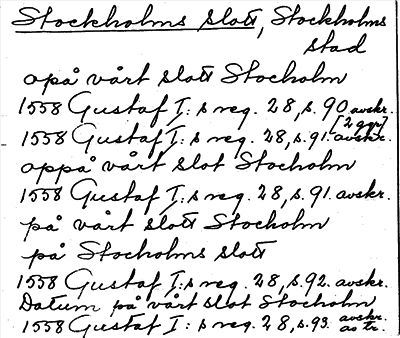 Stockholms slott, Stockholms
stad
opå vårt slott Stocholm
1558 Gustaf I:s reg. 28, s. 90 avskr.
[2 ggr]
1558 Gustaf I:s reg. 28, s. 91. avskr.
oppå vårt slot Stocholm
1558 Gustaf I:s reg. 28, s. 91. avskr.
på vårt slott Stocholm
på Stocholms slott
1558 Gustaf I:s reg. 28, s. 92. avskr.
Datum på vårt slot Stocholm
1558 Gustaf I:s reg. 28, s. 93. avskr.
ao tr.